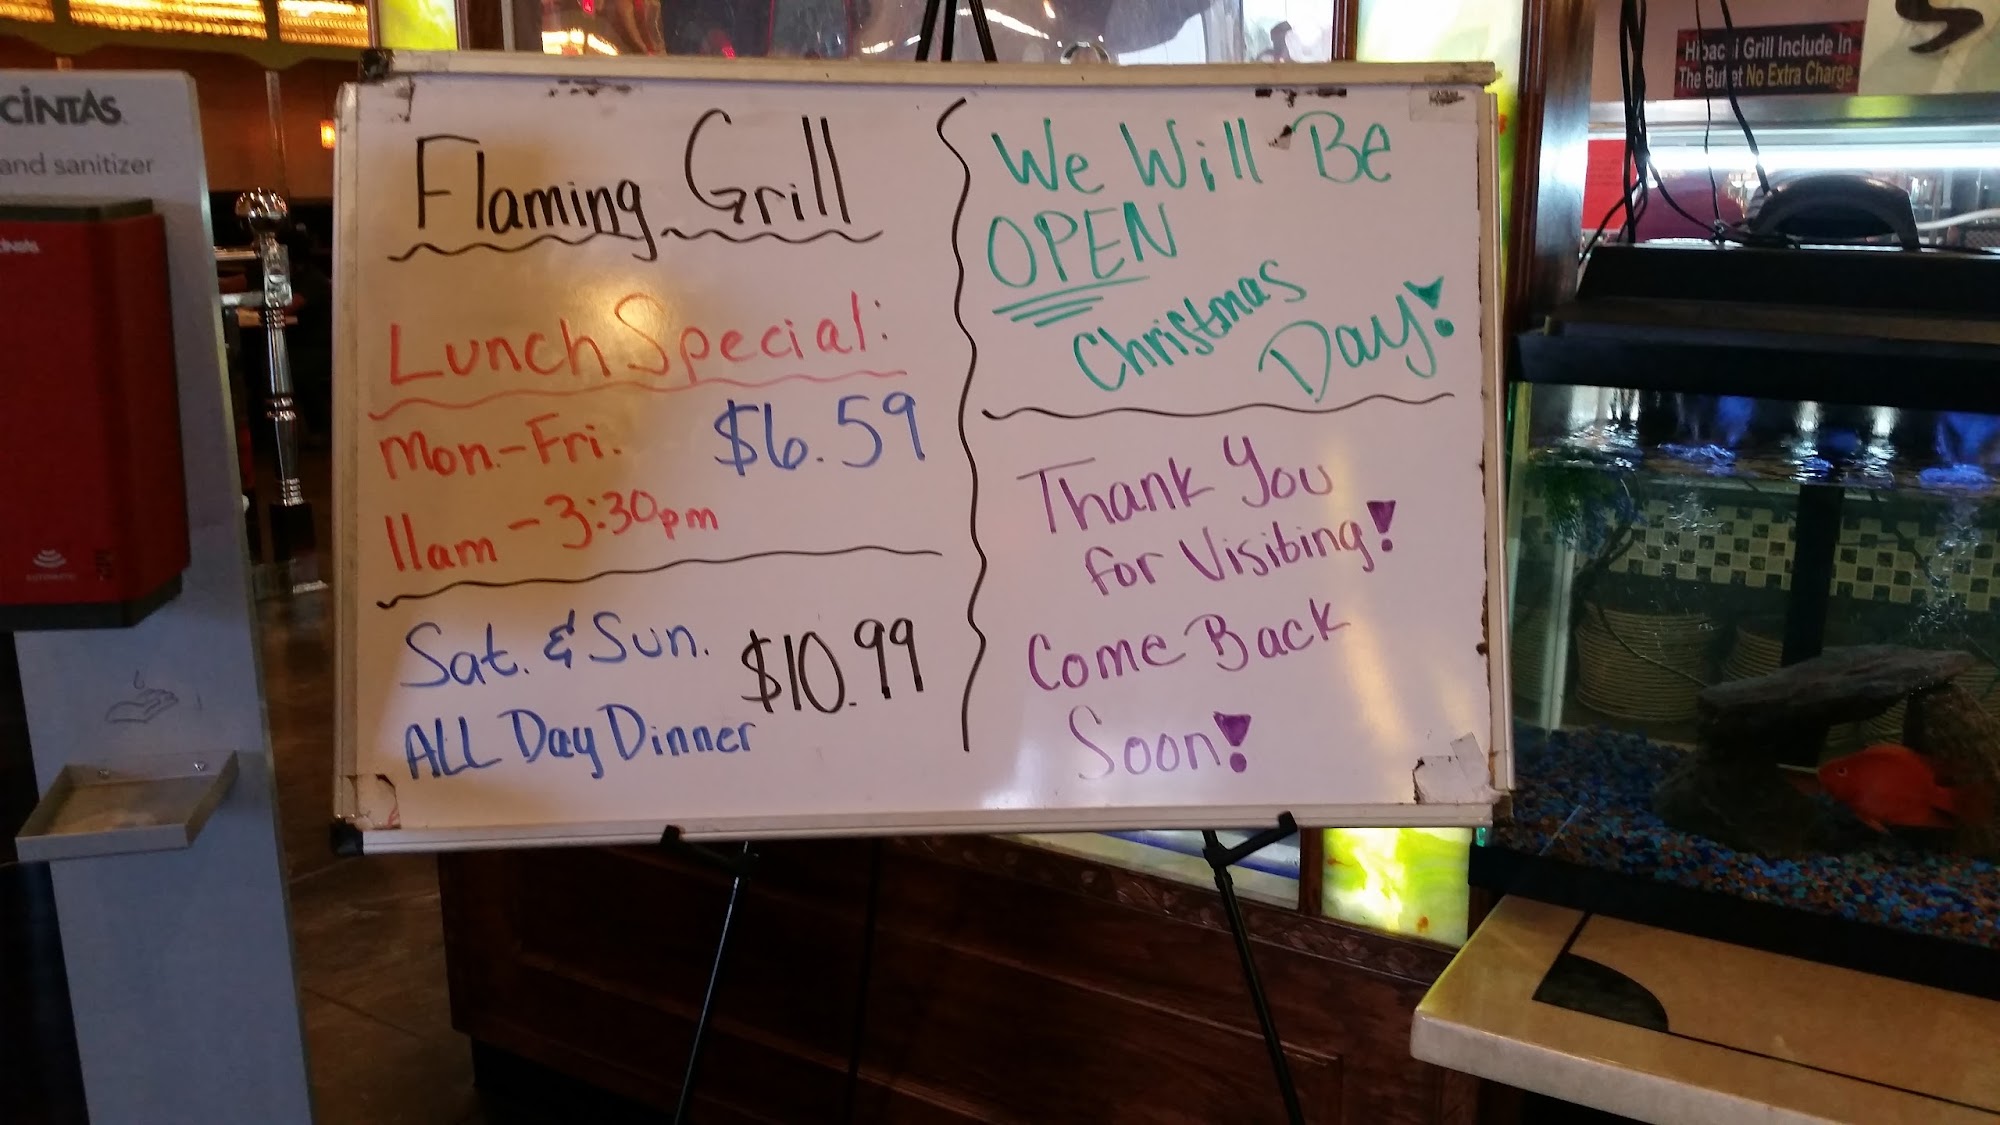 Flaming Grill
Lunch Special:
Mon.-Fri. $6.59
11am - 3:30pm
Sat. & Sun. $10.99
ALL Day Dinner
We Will Be
OPEN
Christmas
Day!
Thank You
for Visiting!
Come Back
Soon!
CINTAS
and sanitizer
cintas
AUTOMATIC
Hibac i Grill Include In
The Buf et No Extra Charge